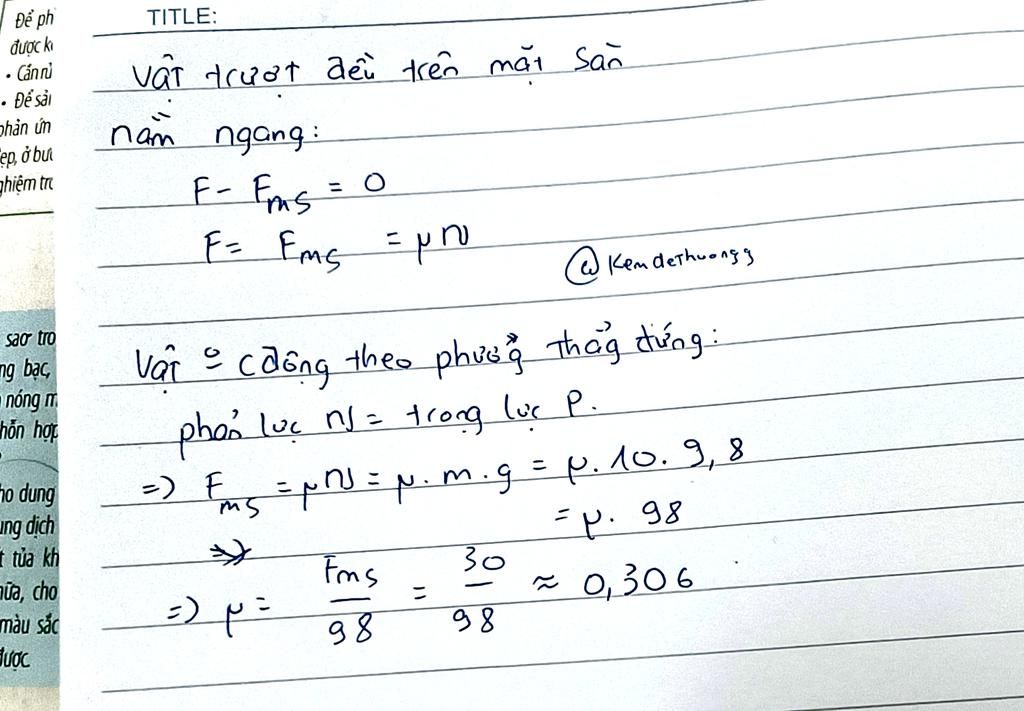 Để ph
được k
• Cần rủ
• Để sải
phản ứn
ẹp, ở bư
ghiệm trc
sao tro
ng bạc,
nóng m
hỗn hợp
ho dung
ung dịch
t tủa kh
nữa, cho
màu sắc
được
TITLE:
Vật trượt đều trên mặt sàn
nằm ngang:
F - Fms = 0
F = Fms = μN
@Kemdethuongg
Vật o cđộng theo phương thẳg đứng:
phản lực N = trọng lực P.
=> Fms = μN = μ.m.g = μ.10.9,8
= μ.98
=> μ = Fms/98 = 30/98 ≈ 0,306